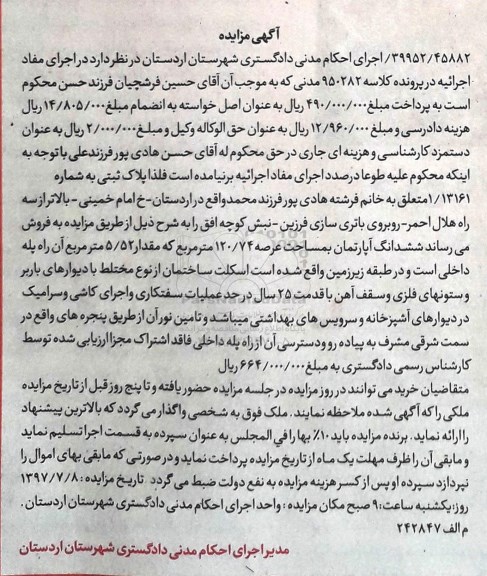 آگهی مزایده
۳۹۹۵۲/۴۵۸۸۲/ اجرای احکام مدنی دادگستری شهرستان اردستان در نظر دارد در اجرای مفاد
اجرائیه در پرونده کلاسه ۹۵۰۲۸۲ مدنی که به موجب آن آقای حسین فرشچیان فرزند حسن محکوم
است به پرداخت مبلغ ۴۹۰/۰۰۰/۰۰۰ ریال به عنوان اصل خواسته به انضمام مبلغ ۱۴/۸۰۵/۰۰۰ ریال
هزینه دادرسی و مبلغ ۱۲/۹۶۰/۰۰۰ ریال به عنوان حق الوکاله وکیل و مبلغ ۲/۰۰۰/۰۰۰ ریال به عنوان
دستمزد کارشناسی و هزینه ای جاری در حق محکوم له آقای حسن هادی پور فرزند علی با توجه به
اینکه محکوم علیه طوعا درصدد اجرای مفاد اجرائیه برنیامده است فلذا پلاک ثبتی به شماره
۱/۱۳۱۶۱ متعلق به خانم فرشته هادی پور فرزند محمد واقع در اردستان-خ امام خمینی - بالاتر از سه
راه هلال احمر-روبروی باتری سازی فرزین -نبش کوچه افق را به شرح ذیل از طریق مزایده به فروش
می رساند ششدانگ آپارتمان بمساحت عرصه ۱۲۰/۷۴ متر مربع که مقدار ۵/۵۲ متر مربع آن راه پله
داخلی است و در طبقه زیرزمین واقع شده است اسکلت ساختمان از نوع مختلط با دیوارهای باربر
و ستونهای فلزی و سقف آهن با قدمت ۲۵ سال در حد عملیات سفتکاری و اجرای کاشی و سرامیک
در دیوارهای آشپزخانه و سرویس های بهداشتی میباشد و تامین نور آن از طریق پنجره های واقع در
سمت شرقی مشرف به پیاده رو و دسترسی آن از راه پله داخلی فاقد اشتراک مجزا ارزیابی شده توسط
کارشناس رسمی دادگستری به مبلغ ۶۶۴/۰۰۰/۰۰۰ ریال
متقاضیان خرید می توانند در روز مزایده در جلسه مزایده حضور یافته و تا پنج روز قبل از تاریخ مزایده
ملکی را که آگهی شده ملاحظه نمایند. ملک فوق به شخصی واگذار می گردد که بالاترین پیشنهاد
را ارائه نماید. برنده مزایده باید ۱۰٪ بها را في المجلس به عنوان سپرده به قسمت اجرا تسلیم نماید
و مابقی آن را ظرف مهلت یک ماه از تاریخ مزایده پرداخت نماید و در صورتی که مابقی بهای اموال را
نپردازد سپرده او پس از کسر هزینه مزایده به نفع دولت ضبط می گردد تاریخ مزایده : ۱۳۹۷/۷/۸
روز: یکشنبه ساعت: ۹ صبح مکان مزایده : واحد اجرای احکام مدنی دادگستری شهرستان اردستان .
م الف ۲۴۲۸۴۷
مدیر اجرای احکام مدنی دادگستری شهرستان اردستان